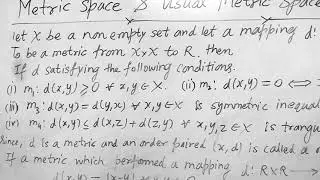 Metric Space & Usual Metric Space
let X be a non empty set and let a mapping d:
To be a metric from X×X to R, then
If d satisfying the following conditions.
(i) m₁: d(x,y) ⩾ 0 ∀ x,y ∈ X. (ii) m₂: d(x,y) = 0 ⟺
(iii) m₃: d(x,y) = d(y,x) ∀ x,y ∈ X is symmetric inequal
(iv) m₄: d(x,y) ≤ d(x,z) + d(z,y) ∀ x,y,z ∈ X is trangu
ince, d is a metric and an order paired (x,d) is called a
If a metric which performed a mapping d: R×R →
d(x,y) = |x-y|